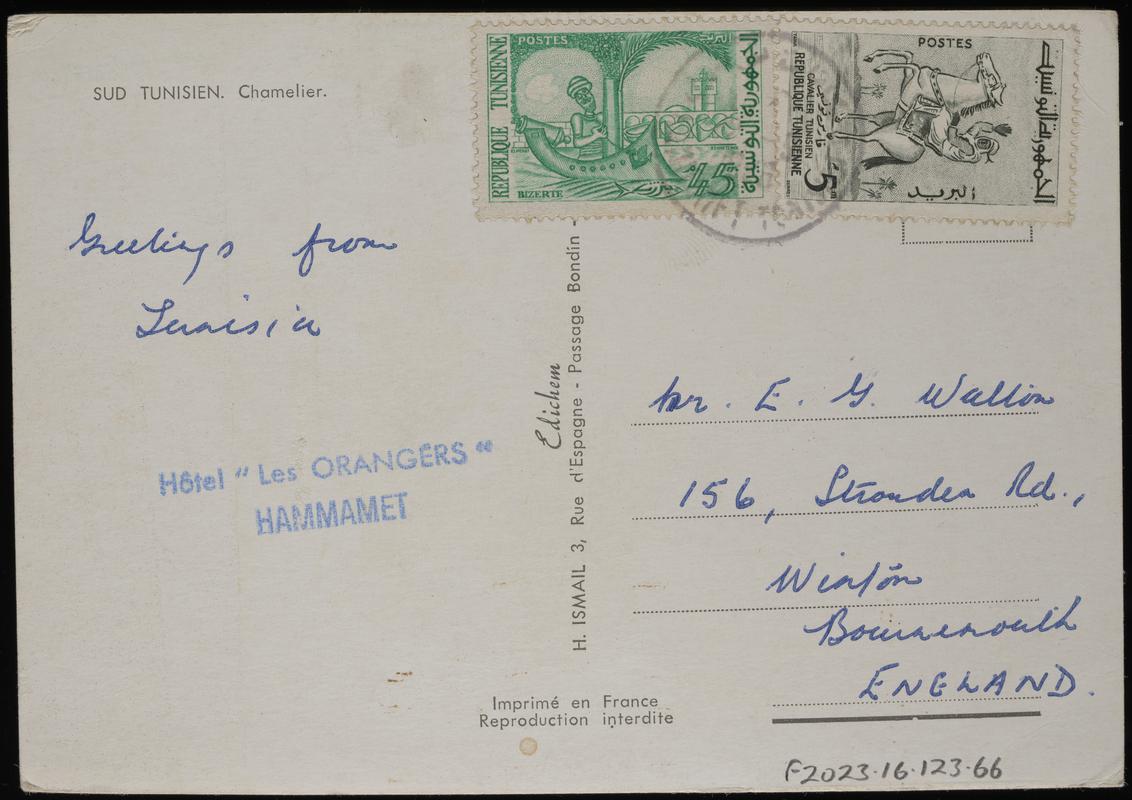 SUD TUNISIEN. Chamelier.
Greetings from
Tunisia
Hôtel “Les ORANGERS“
HAMMAMET
Edichem
H. ISMAIL 3, Rue d'Espagne - Passage Bondin -
Imprimé en France
Reproduction interdite
REPUBLIQUE TUNISIENNE
POSTES
البريد
الجمهورية التونسية
BIZERTE
بنزرت
45
POSTES
الجمهورية التونسية
البريد
فارس تونسي
CAVALIER TUNISIEN
REPUBLIQUE TUNISIENNE
5
Mr. E. G. Wallon
156, Strouden Rd.,
Winton
Bournemouth
ENGLAND.
F2023.16.123.66